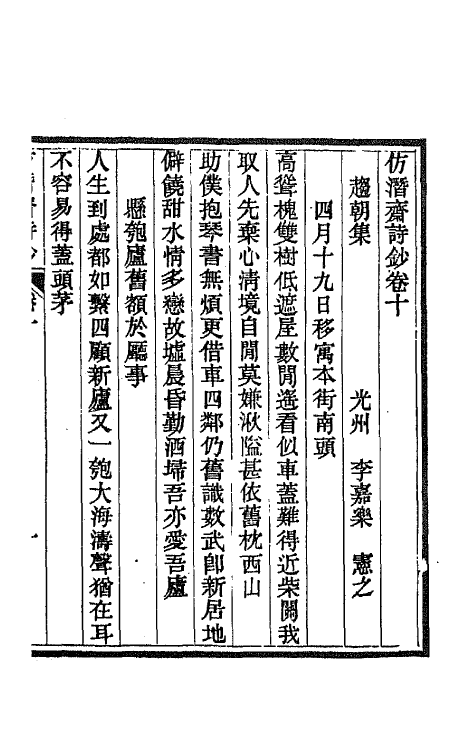 仿潛齋詩鈔卷十
趨朝集　光州　李嘉樂　憲之
四月十九日移寓本街南頭
高聳槐雙樹低遮屋數閒遙看似車蓋難得近柴關我
取人先棄心淸境自閒莫嫌湫隘甚依舊枕西山
助僕抱琴書無煩更借車四鄰仍舊識數武卽新居地
僻饒甜水情多戀故墟晨昏勤洒埽吾亦愛吾廬
懸匏廬舊額於廳事
人生到處都如繫四顧新廬又一匏大海濤聲猶在耳
不容易得蓋頭茅